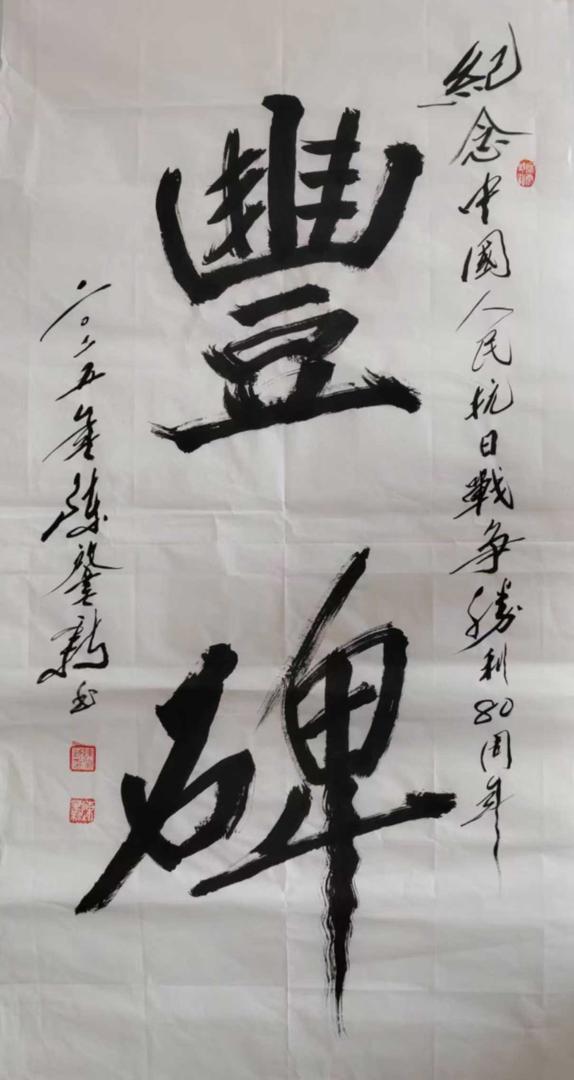 紀念中國人民抗日戰争勝利80周年
豐碑
二〇二五年陳肇勛書